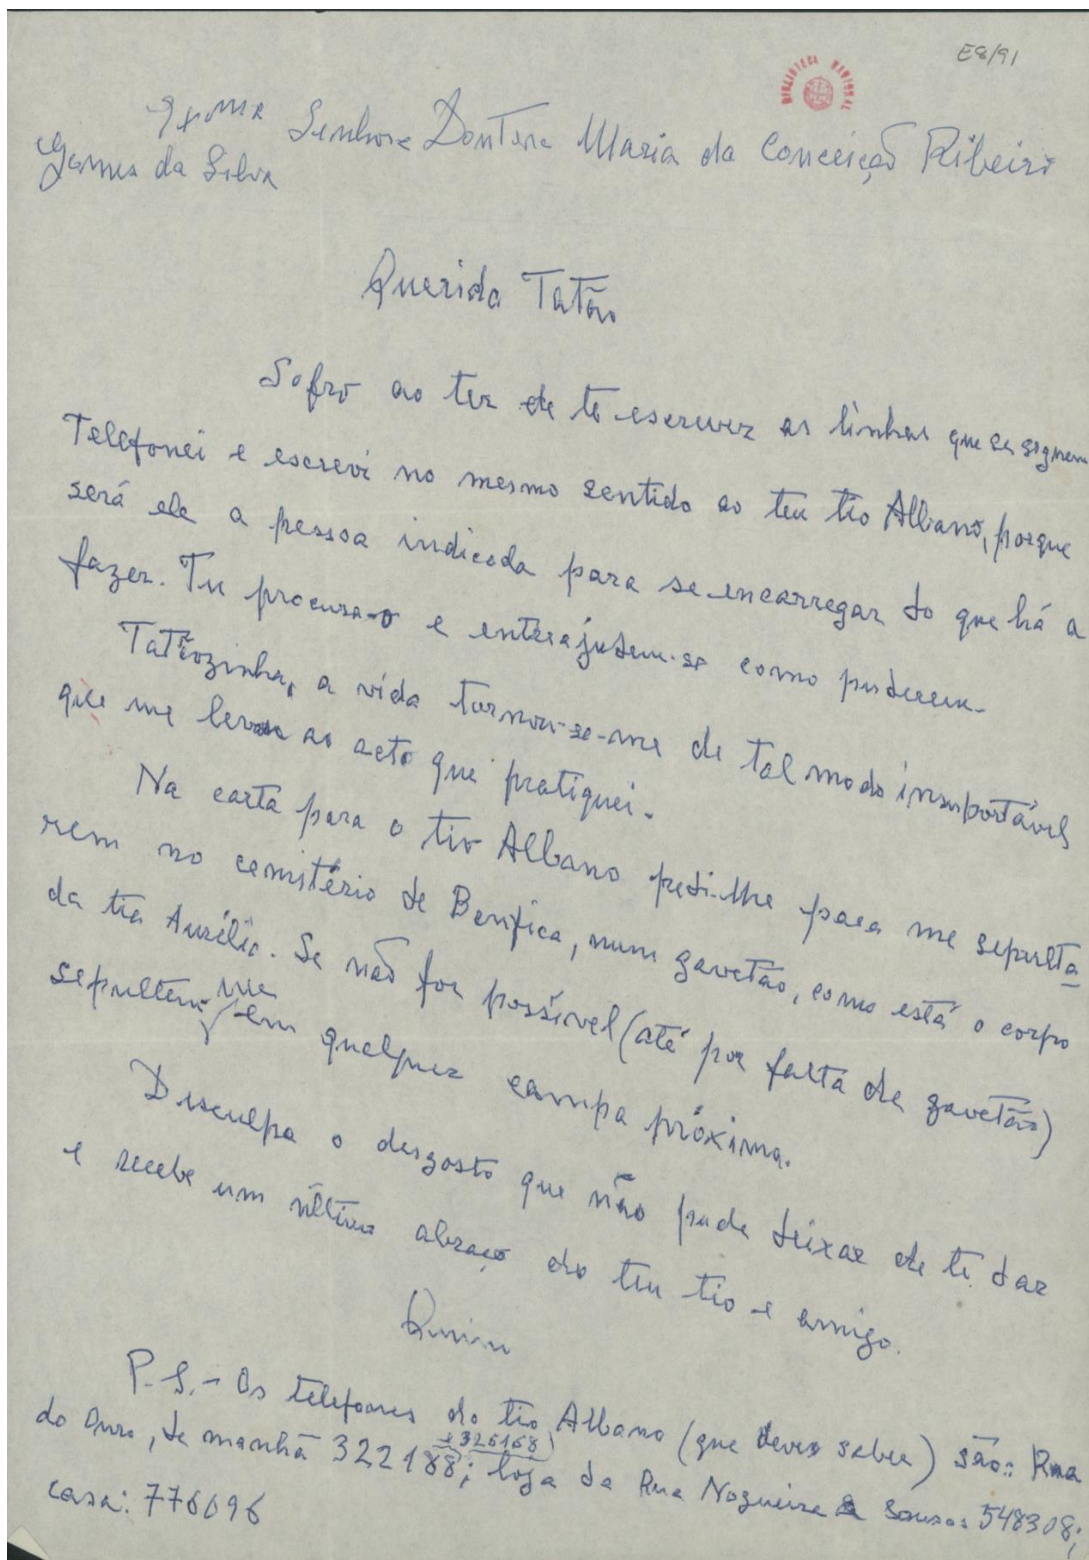 E8/91
BIBLIOTECA NACIONAL
Exma Senhora Doutora Maria da Conceição Ribeiro
Gomes da Silva
Querida Tatão
Sofro ao ter de te escrever as linhas que se seguem
Telefonei e escrevi no mesmo sentido ao teu tio Albano, porque
será ele a pessoa indicada para se encarregar do que há a
fazer. Tu procura-o e entreajudem-se como puderem.
Tatãozinha, a vida tornou-se-me de tal modo insuportável
que me levou ao acto que pratiquei.
Na carta para o tio Albano pedi-lhe para me sepulta
rem no cemitério de Benfica, num gavetão, como está o corpo
da tia Aurélia. Se não for possível (até por falta de gavetão)
sepultem-me em qualquer campa próxima.
Disculpa o desgosto que não pude deixar de te dar
e recebe um último abraço do teu tio e amigo.
P.S. - Os telefones do tio Albano (que deves saber) são: Rua
do Ouro, de manhã 322188 (e 326168); loja da Rua Nogueira e Sousa: 548308;
casa: 776096